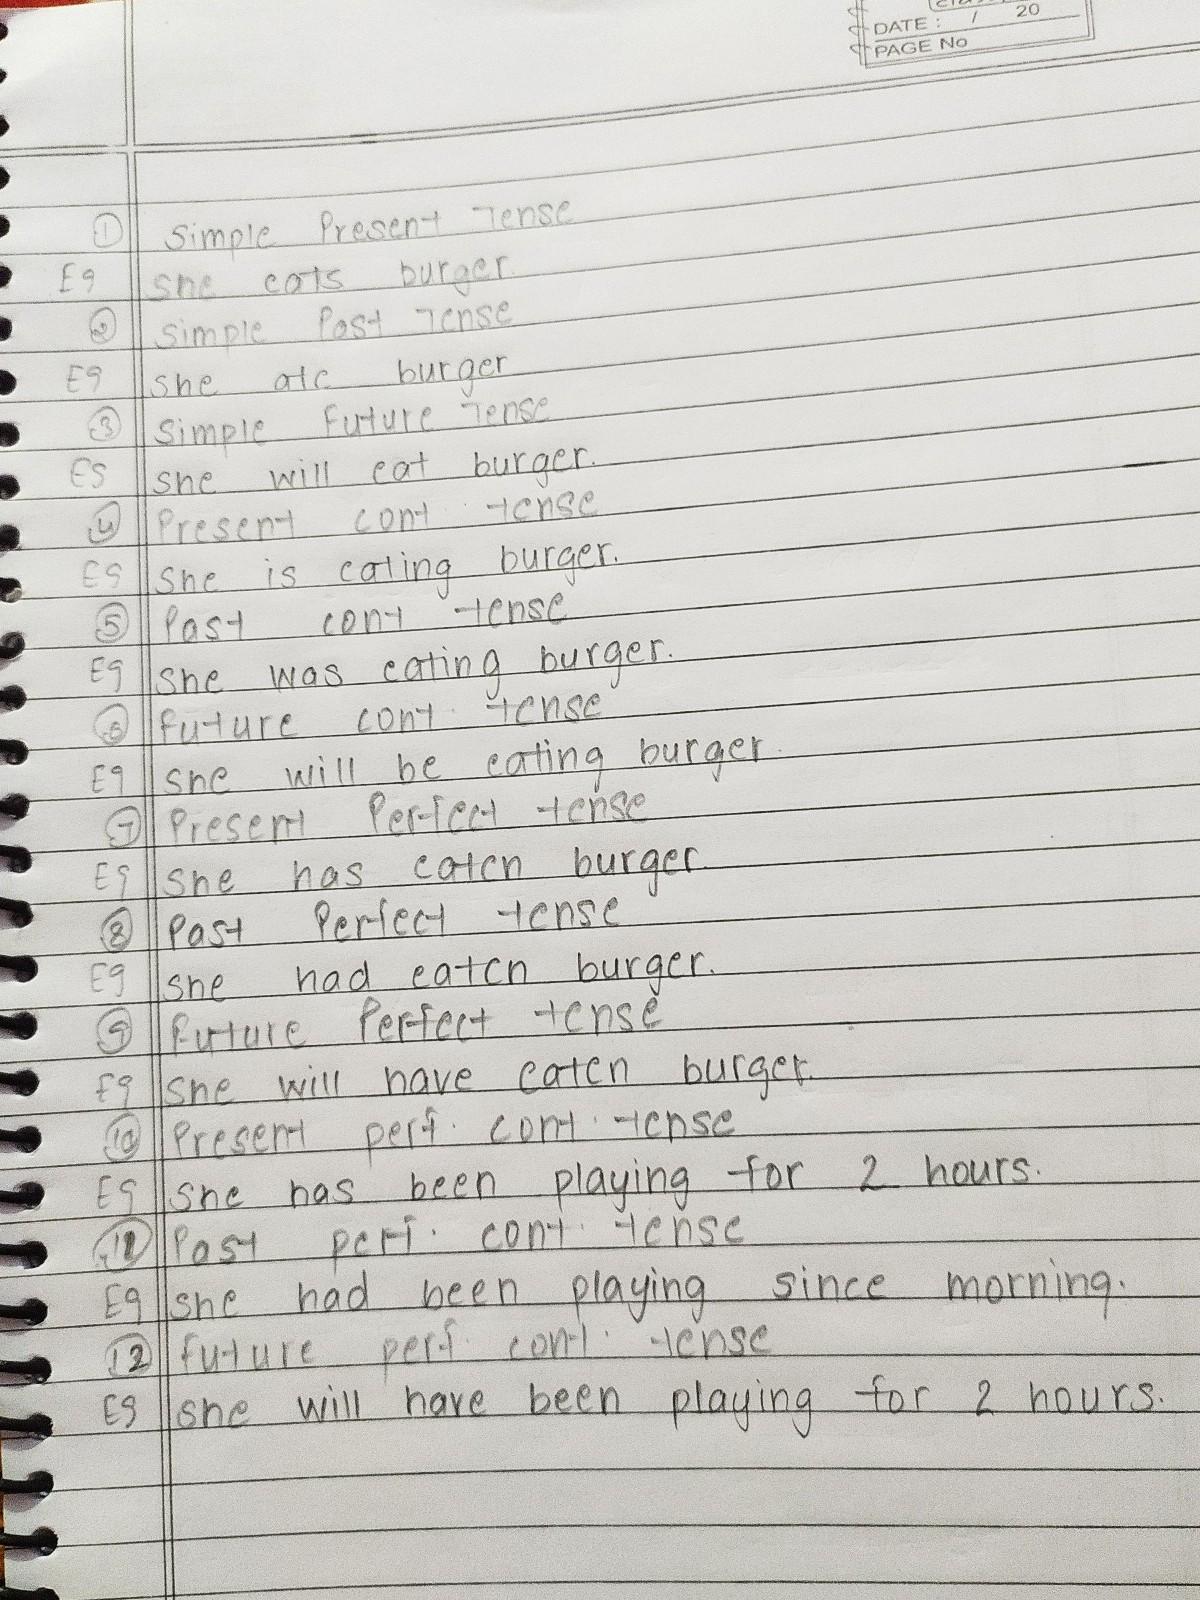 DATE : / 20
PAGE No
① Simple Present Tense
Eg She eats burger.
② Simple Past Tense
Eg She ate burger
③ Simple Future Tense
Eg She will eat burger.
④ Present cont tense
Eg She is eating burger.
⑤ Past cont tense
Eg She was eating burger.
⑥ Future cont. tense
Eg She will be eating burger.
⑦ Present Perfect tense
Eg She has eaten burger.
⑧ Past Perfect tense
Eg She had eaten burger.
⑨ Future Perfect tense
Eg She will have eaten burger.
⑩ Present perf. cont. tense
Eg She has been playing for 2 hours.
⑪ Past perf. cont. tense
Eg She had been playing since morning.
⑫ Future perf. cont. tense
Eg She will have been playing for 2 hours.